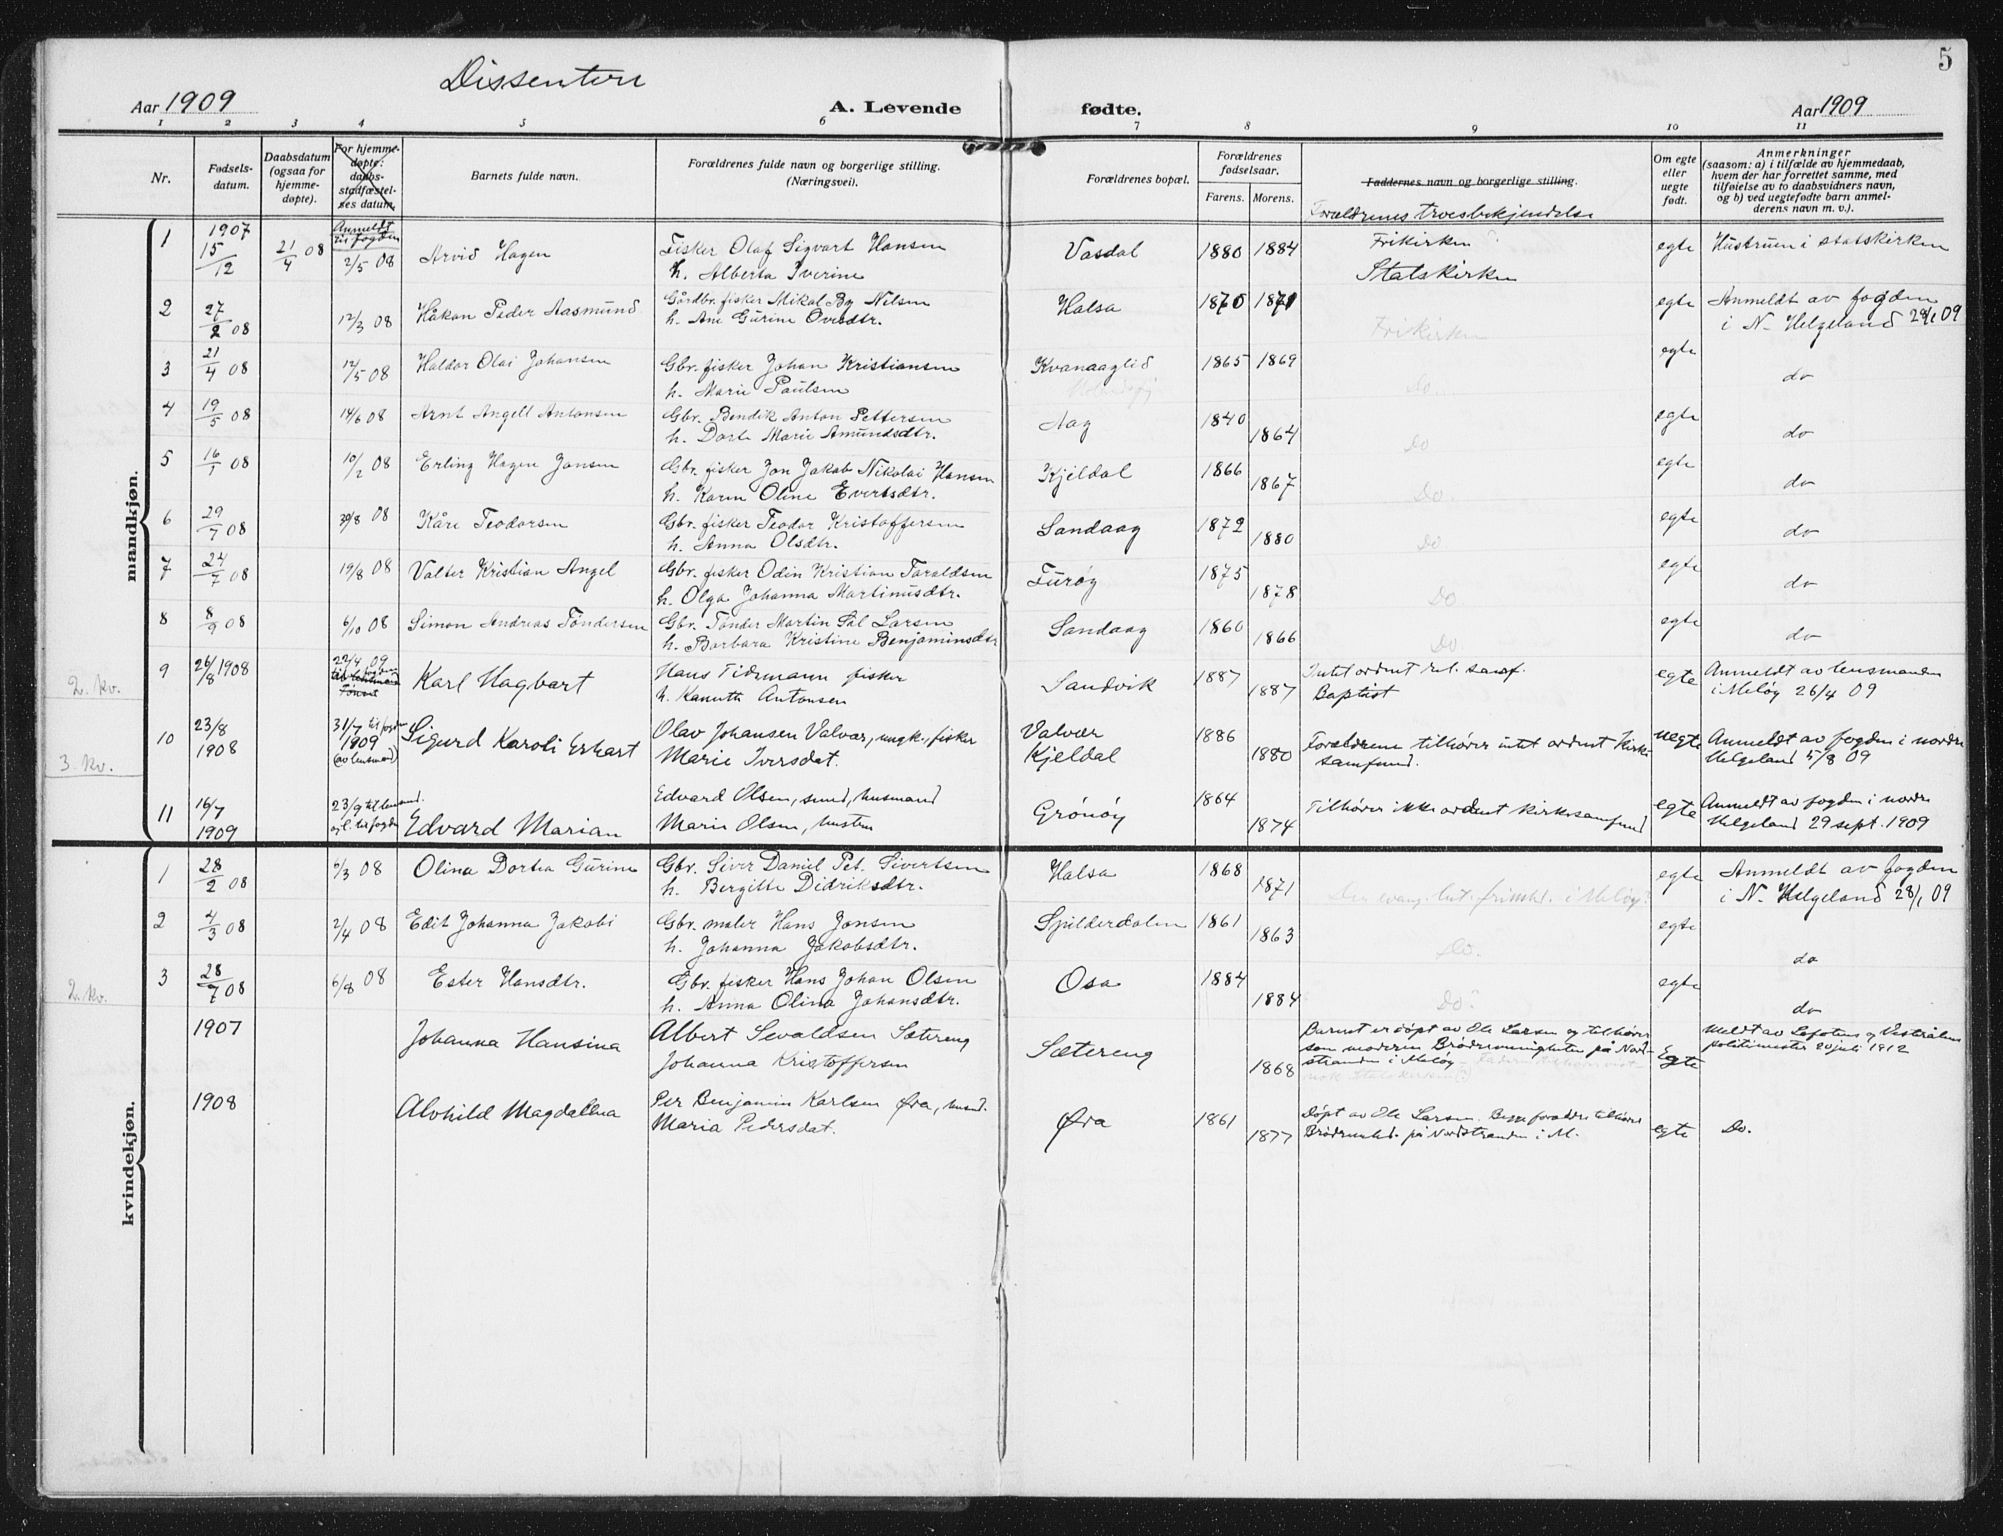 5
Dissentere
Aar 1909
A. Levende fødte.
Aar 1909
1 2 3 4 5 6 7 8 9 10 11
Nr.
Fødsels-
datum.
Daabsdatum
(ogsaa for
hjemme-
døpte).
For hjemme-
døpte:
daabs-
stadfæstel-
ses datum.
Anmeldt
til fogden
Barnets fulde navn.
Forældrenes fulde navn og borgerlige stilling.
(Næringsvei).
Forældrenes bopæl.
Forældrenes
fødselsaar.
Farens. Morens.
Faddernes navn og borgerlige stilling.
Forældrenes troesbekjendelse
Om egte
eller
uegte
født.
Anmerkninger
(saasom: a) i tilfælde av hjemmedaab,
hvem der har forrettet samme, med
tilføielse av to daabsvidners navn,
og b) ved uegtefødte barn anmel-
derens navn m. v.).
mandkjøn.
1 1907 15/12 21/4 08 2/5 08 Arvid Hagen Fisker Olaf Sigvart Hansen Vasdal 1880 1884 Frikirken egte Hustruen i statskirken
h. Alberta Iverine Statskirken
2 27/2 08 12/3 08 Håkon Peder Aasmund Gårdbr. fisker Mikal By Nilsen Halsa 1870 1871 Frikirken egte Anmeldt av fogden
h. Ane Gurine Ovesdtr. i N. Helgeland 28/1 09
3 21/4 08 12/5 08 Haldor Olai Johansen Gbr. fisker Johan Kristiansen Kvanaaglid 1865 1869 Do egte do
h. Marie Paulsen
4 19/5 08 14/6 08 Arnt Angell Antonsen Gbr. Bendik Anton Pettersen Aag 1840 1864 Do egte do
h. Dorte Marie Amundsdtr.
5 16/1 08 10/2 08 Erling Hagen Jonsen Gbr. fisker Jon Jakob Nikolai Hansen Kjeldal 1866 1867 Do. egte do
h. Karen Oline Evertsdtr.
6 29/7 08 30/8 08 Kåre Teodorsen Gbr. fisker Teodor Kristoffersen Sandaag 1872 1880 Do egte do
h. Anna Olsdtr.
7 24/7 08 19/8 08 Valter Kristian Angel Gbr. fisker Odin Kristian Taraldsen Furøy 1875 1878 Do egte do
h. Olga Johanna Martinusdtr.
8 8/9 08 6/10 08 Simon Andreas Töndersen Gbr. Tønder Martin Sal Larsen Sandaag 1860 1866 Do egte do
h. Barbara Kristine Benjaminsdtr
2. kv. 9 26/8 1908 22/4 09 Karl Hagbart Hans Tidemann fisker Sandvik 1887 1887 Intet ordnet rel. samf. egte Anmeldt av lensmanden
h. Kanutte Antonsen Baptist i Meløy 26/4 09
3. kv. 10 23/8 1908 31/7 til fogden 1909 (av lensmand) Sigurd Karoli Erhart Olav Johansen Valvær, ungk., fisker Valvær 1886 1880 Forældrene tilhører intet ordnet Kirke- uegte Anmeldt av fogden i nordre
Marie Iversdat. Kjeldal samfund. Helgeland 5/8 09
11 16/7 1909 23/9 til lensmand. til fogden Edvard Marian Edvard Olsen, smed, husmand Grönöy 1864 1874 Tilhører ikke ordnet kirkesamfund egte Anmeldt av fogden i nordre
Marie Olsen, hustru Helgeland 29 sept. 1909
kvindekjøn.
1 28/2 08 6/3 08 Olina Dortea Gurine Gbr. Siver Daniel Pet. Sivertsen Halsa 1868 1871 Den evang. lut. frimh. i Meløy? egte Anmeldt av fogden
h. Bergitte Didriksdtr. i N. Helgeland 28/1 09
2 4/3 08 2/4 08 Edit Johanna Jakobi Gbr. maler Hans Jonsen Spilderdalen 1861 1863 Do. egte do
h. Johanna Jakobsdtr.
2. kv. 3 28/7 08 6/8 08 Ester Hansdtr. Gbr. fisker Hans Johan Olsen Osa 1884 1884 Do? egte do
h. Anna Olina Johansdtr.
1907 Johanna Hansina Albert Sevaldsen Sætereng Sætereng 1868 Barnet er döpt av Ole Larsen og tilhører Egte Meldt av Lofotens og Vesterålens
Johanna Kristoffersen som moderen Brödremenigheten på Nord- politimester 20 juli 1912
stranden i Meløy
1908 Alvhild Magdalena Per Benjamin Karlsen Øra, husmd. Øra 1861 1877 Döpt av Ole Larsen. Begge forældre tilhører egte Do.
Maria Pedersdat. Brödremhd. på Nordstranden i M.